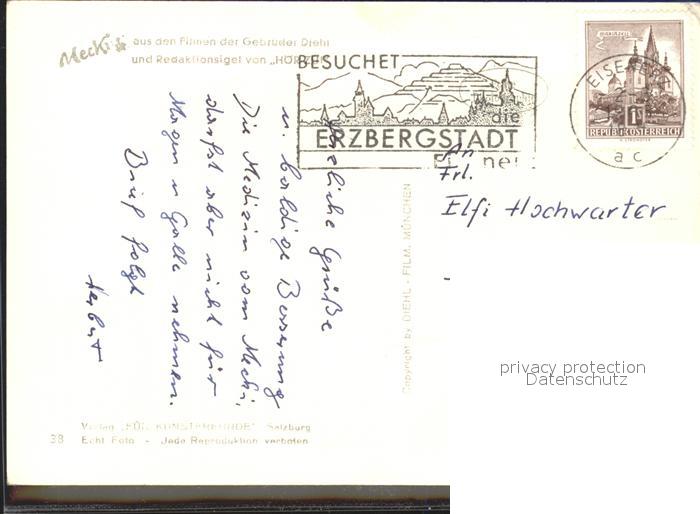 Mecki aus den Filmen der Gebrüder Diehl
und Redaktionsigel von „HÖRZU"
BESUCHET
die
ERZBERGSTADT
MARIAZELL
1 S
REPUBLIK ÖSTERREICH
a c
An
Frl.
Elfi Hochwarter
Herzliche Grüße
u. baldige Besserung
Die Medizin vom Mecki,
darfst aber nicht für
Magen u Galle nehmen.
Brief folgt
Herbert
Copyright by DIEHL - FILM, MÜNCHEN
privacy protection
Datenschutz
Verlag „FÜR KUNSTFREUNDE" Salzburg
38 Echt Foto - Jede Reproduktion verboten